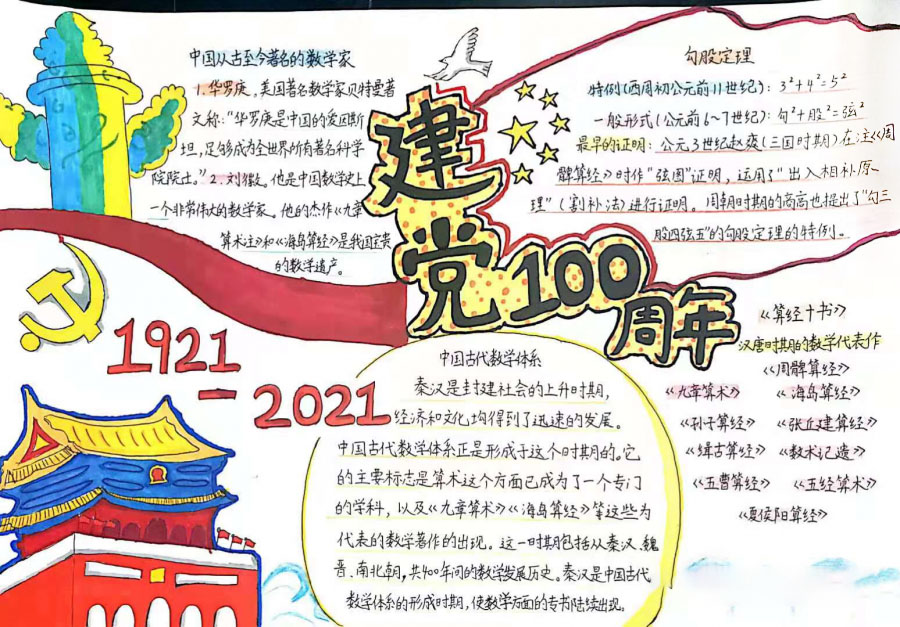 中国从古至今著名的数学家
1.华罗庚,美国著名数学家贝特曼著
文称:"华罗庚是中国的爱因斯
坦,足够成为全世界所有著名科学
院院士。"2.刘徽。他是中国数学史上
一个非常伟大的数学家。他的杰作《九章
算术注》和《海岛算经》是我国宝贵
的数学遗产。
建党100周年
勾股定理
特例(西周初公元前11世纪):3²+4²=5²
一般形式(公元前6~7世纪):勾²+股²=弦²
最早的证明:公元3世纪赵爽(三国时期)在注《周
髀算经》时作"弦图"证明,运用了"出入相补原
理"(割补法)进行证明。周朝时期的商高也提出了"勾三
股四弦五"的勾股定理的特例。
1921
-2021
中国古代数学体系
秦汉是封建社会的上升时期,
经济和文化均得到了迅速的发展。
中国古代数学体系正是形成于这个时期的。它
的主要标志是算术这个方面已成为了一个专门
的学科,以及《九章算术》《海岛算经》等这些为
代表的数学著作的出现。这一时期包括从秦汉、魏
晋、南北朝,共400年间的数学发展历史。秦汉是中国古代
数学体系的形成时期,使数学方面的专书陆续出现。
《算经十书》
汉唐时期的数学代表作
《周髀算经》
《九章算术》 《海岛算经》
《孙子算经》 《张丘建算经》
《缉古算经》 《数术记遗》
《五曹算经》 《五经算术》
《夏侯阳算经》